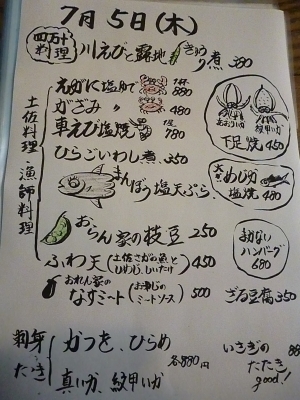 7月5日(木)
四万十料理
川えびと露地きゅうり煮 380
土佐料理・漁師料理
えがに塩ゆで 1杯 880
がざみ 〃 480
車えび塩焼 1尾 780
ひらごいわし煮 350
まんぼう塩天ぷら
おらん家の枝豆 250
ふわ天(土佐さがの魚とひめじ、しいたけ) 450
おれん家のなすミート(お手製のミートソース) 500
あおりいか
紋甲いか
下足焼 450
大 めじか塩焼 480
ハンバーグ 680
ざる豆腐 350
刺身・たたき
かつを、ひらめ
真いか、紋甲いか
各880円
いさぎのたたき
good!